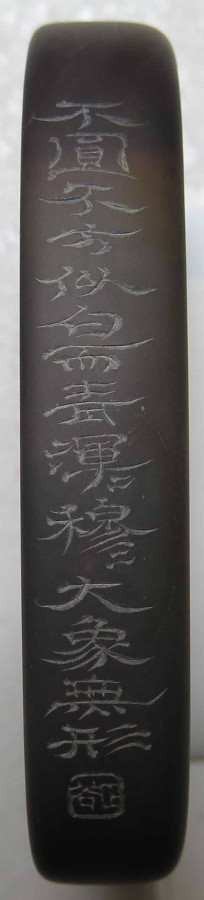 不圓不方似白而青渾〻穆〻大象無形